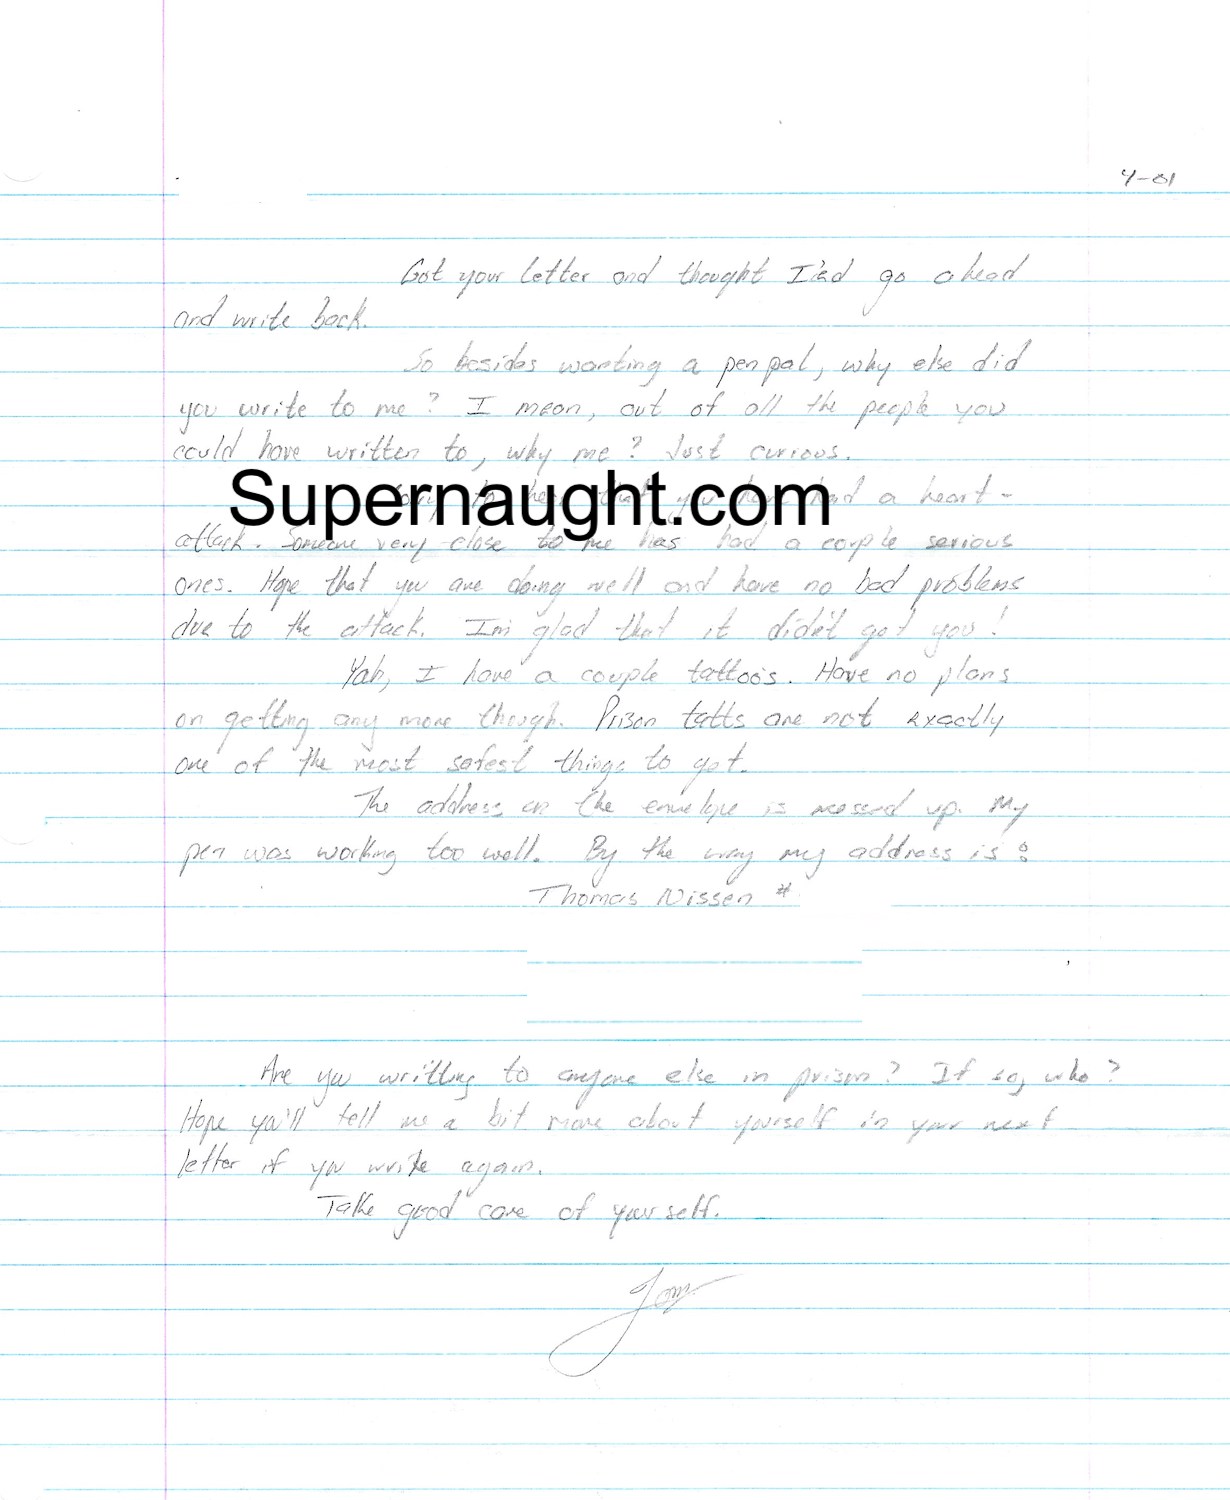 4-01
Got your letter and thought I'd go ahead
and write back.
So besides wanting a pen pal, why else did
you write to me? I mean, out of all the people you
could have written to, why me? Just curious.
Supernaught.com
that you have had a heart-
attack. Someone very close to me has had a couple serious
ones. Hope that you are doing well and have no bad problems
due to the attack. I'm glad that it didn't get you!
Yah, I have a couple tattoo's. Have no plans
on getting any more though. Prison tatts are not exactly
one of the most safest things to get.
The address on the envelope is messed up. My
pen was working too well. By the way my address is:
Thomas Nissen #
Are you writting to anyone else in prison? If so, who?
Hope you'll tell me a bit more about yourself in your next
letter if you write again.
Take good care of yourself.
Tom